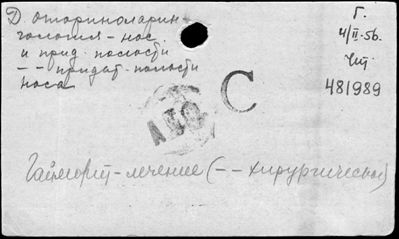 Д. оторинолярин-
гологил - нос
и прид. полости
- - придат. полости
носа
Г.
4/II-56.
481989
С
Гайморит - лечение (- - хирургическое)